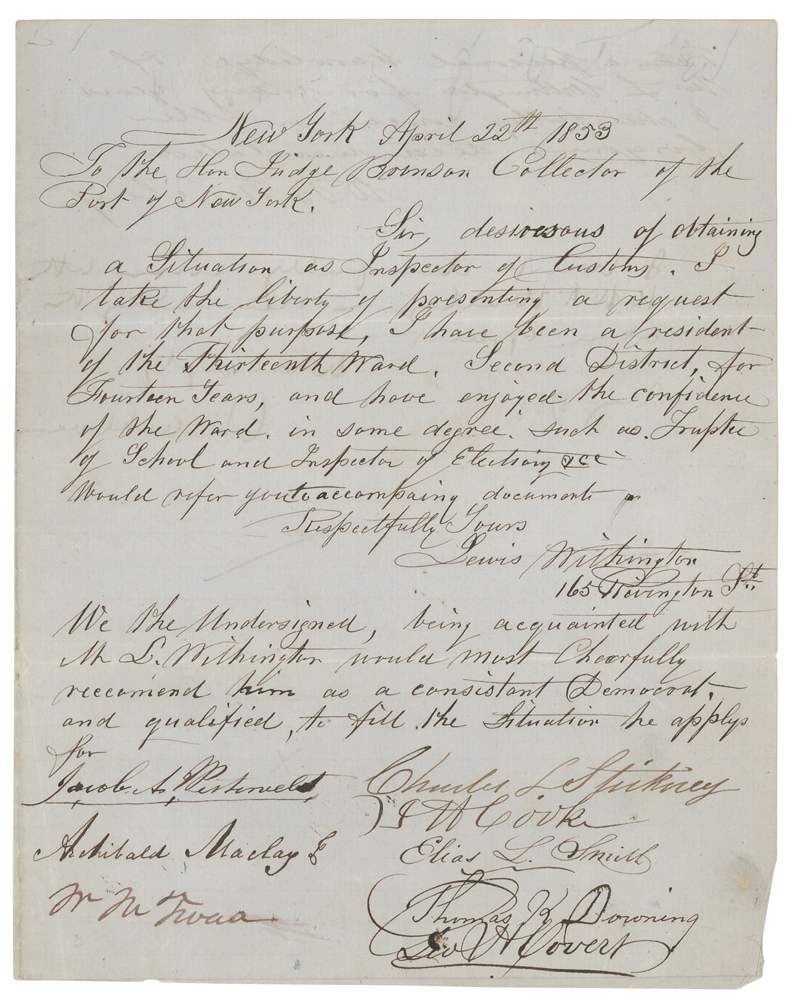 New York April 22th 1853
To the Hon Judge Bronson Collector of the
Port of New York.
Sir, desiresous of obtaining
a Situation as Inspector of Customs. I
take the liberty of presenting a request
for that purpose, I have been a resident
of the Thirteenth Ward. Second District, for
Fourteen Years, and have enjoyed the confidence
of the Ward. in some degree. such as. Trustee
of School and Inspector of Election &cc
Would refer you to accompaing documents
Respectfully Yours
Lewis Withington
165 Rivington St.
We the Undersigned, being acquainted with
Mr L. Withington would most Cheerfully
reccomend him as a consistant Democrat,
and qualified, to fill the Situation he applys
for
Jacob A. Westervelt
Charles L Stickney
J H Cooke
Archibald Maclay Jr
Elias L. Smith
Wm M Tweed
Thomas K Downing
Geo H Covert